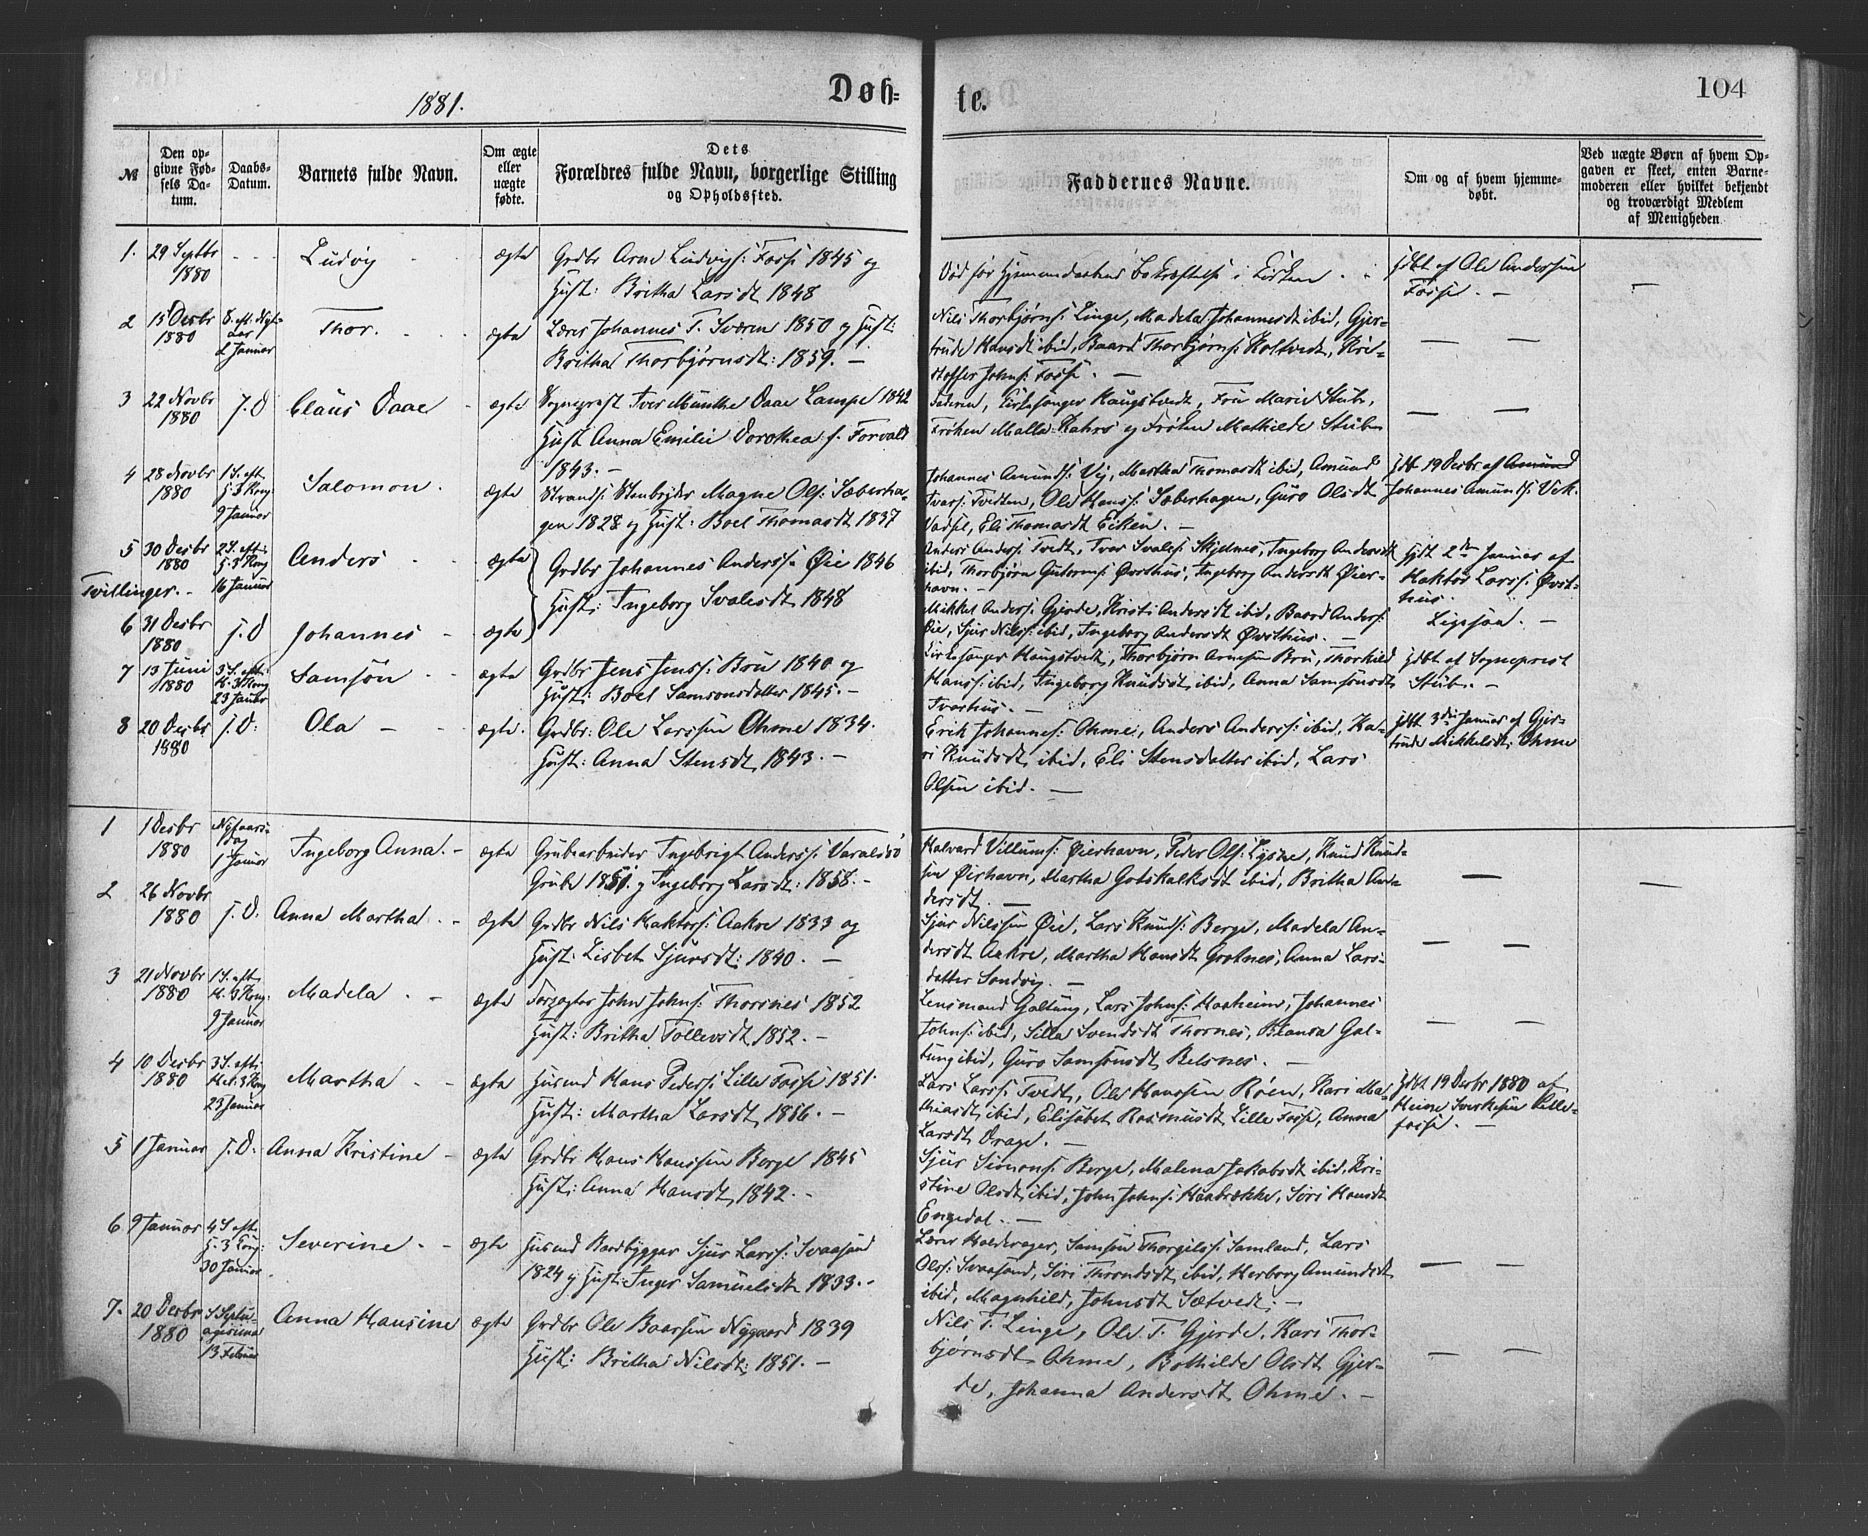 1881.
Døb=
te.
104
№
Den op-
givne Fød-
sels Da-
tum.
Daabs-
Datum.
Barnets fulde Navn.
Om ægte
eller
uægte
fødte.
Dets
Forældres fulde Navn, borgerlige Stilling
og Opholdssted.
Faddernes Navne.
Om og af hvem hjemme-
døbt.
Ved uægte Børn af hvem Op-
gaven er skeet, enten Barne-
moderen eller hvilket bekjendt
og troværdigt Medlem
af Menigheden
1. 29 Septbr
1880
Ludvig
ægte
Grdbr Arne Ludvigs: Fosse 1845 og
Hust: Britha Larsdt 1848
Død før Hjemmedaabens Bekræftelse i Kirken
Hdbt af Ole Anderssen
Fosse. —
2 15 Desbr
1880
8. eft. Nyt-
aar
2 Januar
Thor.
ægte
Lærer Johannes T. Sværen 1850 og Hust:
Britha Thorbjørnsdt: 1859. —
Nils Thorbjørns: Linge, Madela Johannesdt ibid, Gjer-
trude Hansdt ibid, Baard Thorbjørns: Holtvedt, Kri-
stoffer Johns: Fosse. —
3 22 Novbr
1880
J. D
Claus Daae
ægte
Sognepræst Iver Munthe Daae Lampe 1842
Hust Anna Emilie Dorothea f. Forvald
1843. —
Faderen, Kirkesanger Haugstvedt, Fru Marie Stub,
Frøken Malla Kahrs og Frøken Mathilde Stub
4 28 Novbr
1880
1 S. eft.
H 3 Kong
9 Januar
Salomon.
ægte
Strands: Stenbryder Magne Ols: Sæberha-
gen 1828 og Hust: Boel Thomasdt 1837
Johannes Amunds: Vig, Martha Thomasdt ibid, Amund
Ivars: Tvedten, Ole Hanss: Sæberhagen, Guro Olsdt
Vadsel, Eli Thomasdt Eiken. —
Hdt 19 Desbr af Amund
Johannes Amunds: Vik.
5 30 Desbr
1880
2 S. eft.
H. 3 Kong
16 Januar
Anders
ægte
Tvillinger. -
Grdbr Johannes Anderss: Øie 1846
Hust: Ingeborg Svalesdt 1848
Anders Anders: Tvedt, Ivar Svales: Skjelnes, Ingeborg Andersdt
ibid, Thorbjørn Guttorms: Øvsthus, Ingeborg Andersdt Øier-
havn. —
Hjdt 2den Januar af
Haktor Larss: Øvst-
hus.
6 31 Desbr
1880
J. D
Johannes
ægte
Mikkel Anders: Gjerde, Kristi Andersdt ibid, Baard Anders:
Øie, Sjur Nils: ibid, Ingeborg Andersdt Øvsthus. —
Ligesaa. —
7 13 Juni
1880
3 S. eft.
H. 3 Kong
23 Januar
Samson
ægte
Grdbr Jens Jenss: Bru 1840 og
Hust: Boel Samsonsdatter 1845. —
Kirkesanger Haugstvedt, Thorbjørn Arnesen Bru, Thorkild
Hanss: ibid, Ingeborg Knudsdt ibid, Anna Samsonsdt
Tvorhus. —
Hdbt af Sogneprest
Stub. —
8 20 Desbr
1880
J. D.
Ola
ægte.
Grdbr: Ole Larssen Ohme 1834.
Hust: Anna Stensdt 1843. —
Erik Johannes: Ohme, Anders Anderss: ibid, Ka-
ri Knudsdt ibid, Eli Stensdatter ibid, Lars
Olsen ibid. —
Hdbt 3die Januar af Gjer-
trude Mikkelsdt: Ohme
1 1 Desbr
1880
Nytaars-
dag
1 Januar
Ingeborg Anna. -
ægte
Grubearbeider Ingebrigt Anderss: Varaldsø
Grube 1851. og Ingeborg Larsdt: 1858. —
Halvard Villums: Øierhavn, Peder Ols: Lysne, Knud Knud-
sen Øierhavn, Martha Gotskalksdt ibid, Britha An-
dersdt. —
2 26 Novbr
1880
J. D.
Anna Martha. -
ægte
Grdbr Nils Haktors: Aakre 1833 og
Hust: Lisbet Sjursdt: 1840. —
Sjur Nilssen Øie, Lars Knuds: Berge, Madela An-
dersdt Aakre, Martha Hansdt Grotnes, Anna Lars-
datter Sandvig. —
3 21 Novbr
1880
1 S. eft.
H. 3 Kong.
9 Januar
Madela.
ægte
Forpagter John Johns: Thorsnes 1852
Hust: Britha Tollevsdt 1852. —
Lensmand Galtung, Lars Johns: Haaheim, Johannes
Johns: ibid, Silla Svendsdt Thornes, Blanca Gal-
tung ibid, Guro Samsonsdt Belsnes. —
4 10 Desbr
1880
3 S. eft.
Hel. 3 Kong
23 Januar
Martha
ægte
Husmd Hans Peders: Lille Fosse 1851.
Hust: Martha Larsdt, 1856. —
Lars Larss: Tvedt, Ole Hanssen Røen, Kari Ma-
thiasdt ibid, Elisabet Rasmusdt Lille Fosse, Anna
Larsdt Drage. —
Hdbt 19 Desbr 1880 af
Heine Sverkesen Lille-
fosse. —
5 1 Januar
J. D.
Anna Kristine
ægte
Grdbr Hans Hanssen Berge 1845
Hust: Anna Hansdt, 1842. —
Sjur Simons: Berge, Malena Jakobsdt ibid, Kri-
stine Olsdt ibid, John Johns: Haabrække, Søri Hansdt
Engedal. —
6 9 Januar
4 S. eft.
H. 3 Kong:
30 Januar
Severine
ægte
Husmd Baadbygger Sjur Larss: Svaasand
1824 og Hust: Inger Samuelsdt 1833. —
Lærer Halderager, Samson Thorgils: Samland, Lars
Olss: Svaasand, Søri Throndsdt ibid, Herborg Amundsdt
ibid, Magnhild, Johnsdt Sætvedt. —
7. 20 Desbr
1880
S. Septu-
agesima
13 Februar
Anna Hansine
ægte
Grdbr Ole Baarsen Nygaard 1839
Hust: Britha Nilsdt: 1851. —
Nils T. Linge, Ole T. Gjerde, Kari Thor-
bjørnsdt Ohme, Bothilde Olsdt Gjer-
de, Johanna Andersdt Ohme. —